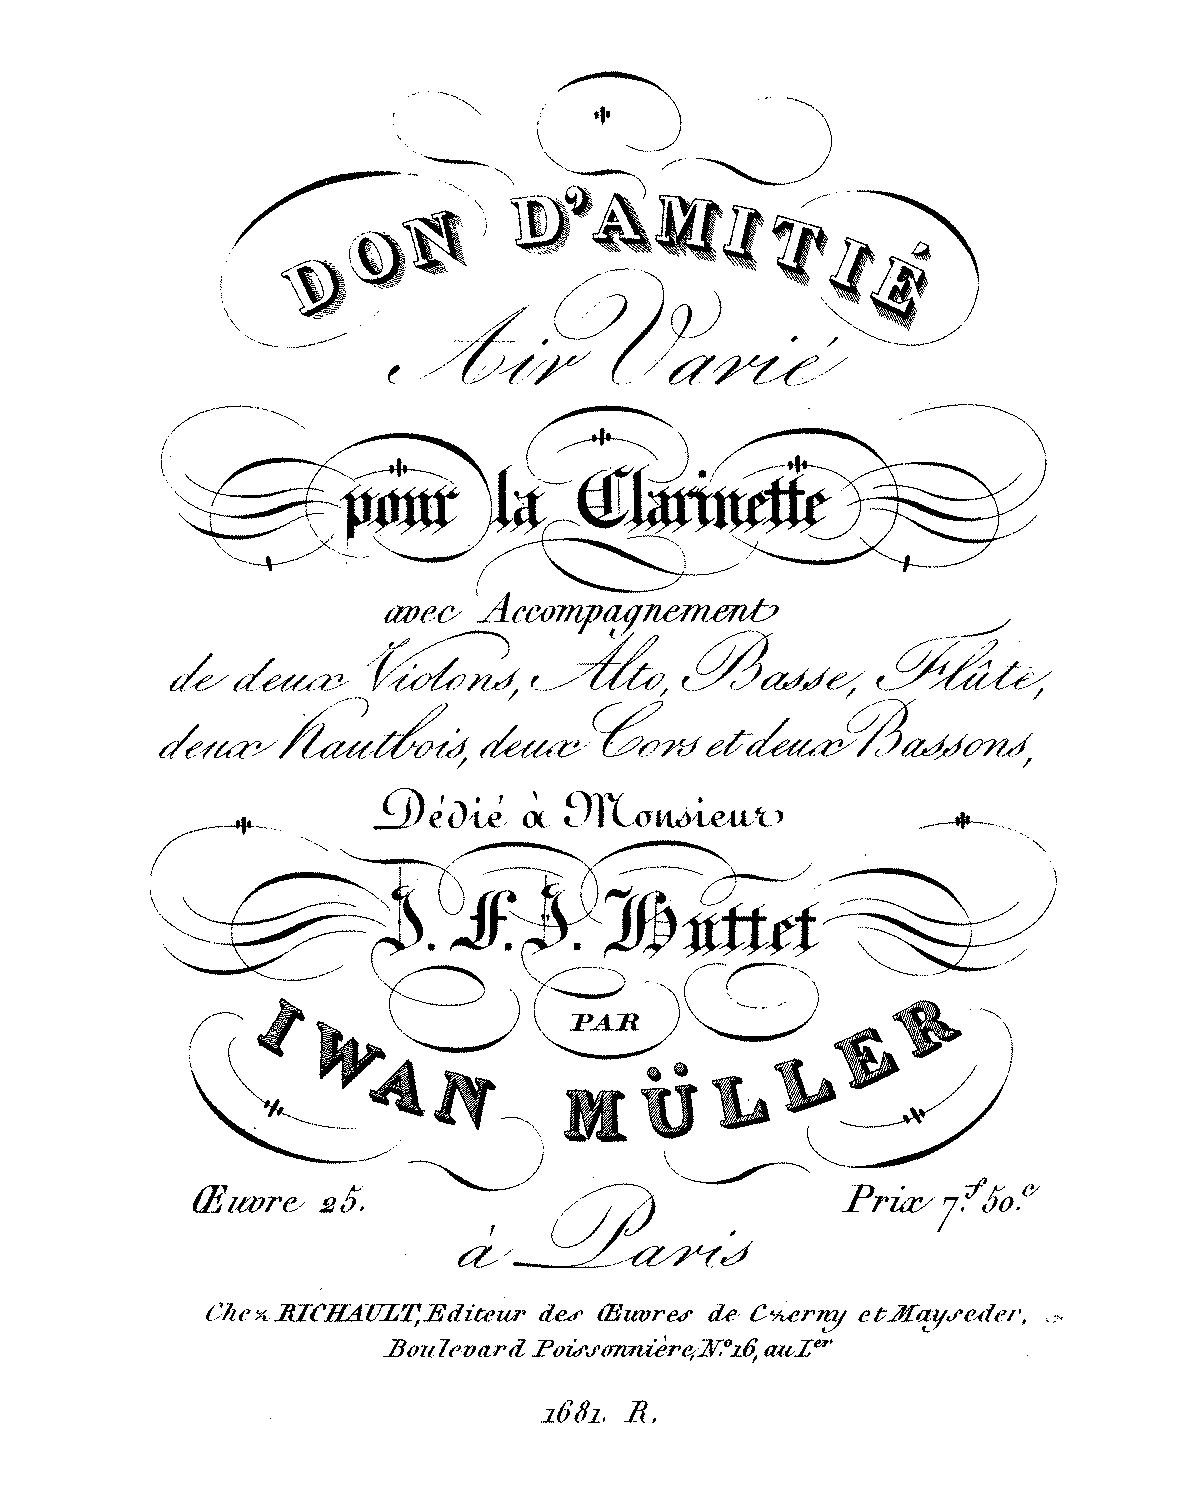 DON D'AMITIÉ
Air Varié
pour la Clarinette
avec Accompagnement
de deux Violons, Alto, Basse, Flûte,
deux Hautbois, deux Cors et deux Bassons,
Dédié à Monsieur
J. F. J. Huttet
PAR
IWAN MÜLLER
Œuvre 25.
Prix 7.f 50.c
à Paris
Chez RICHAULT, Editeur des Œuvres de Czerny et Mayseder,
Boulevard Poissonnière, N.º 16, au I.er
1681. R.